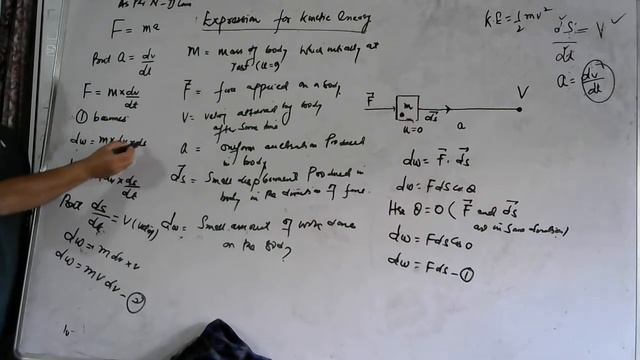 As Per N-II Law
F = ma
But a = dv/dt
F = m × dv/dt
① becomes
dw = m × dv/dt × ds
dv × ds/dt
But ds/dt = V (velocity)
dw = m dv × v
dw = mv dv - ②
Expression for Kinetic Energy
M = mass of body which initially at
rest (u=0)
F = force applied on a body
V = velocity attained by body
after some time
a = uniform acceleration Produced
in body
ds = Small displacement Produced in
body in the direction of force.
dw = Small amount of work done
on the body
K.E = ½ mv²
ds/dt = V
a = dv/dt
F
m
u=0
ds
a
V
dw = F . ds
dw = F ds cos θ
Here θ = 0 ( F and ds
are in same direction)
dw = F ds cos 0
dw = F ds - ①